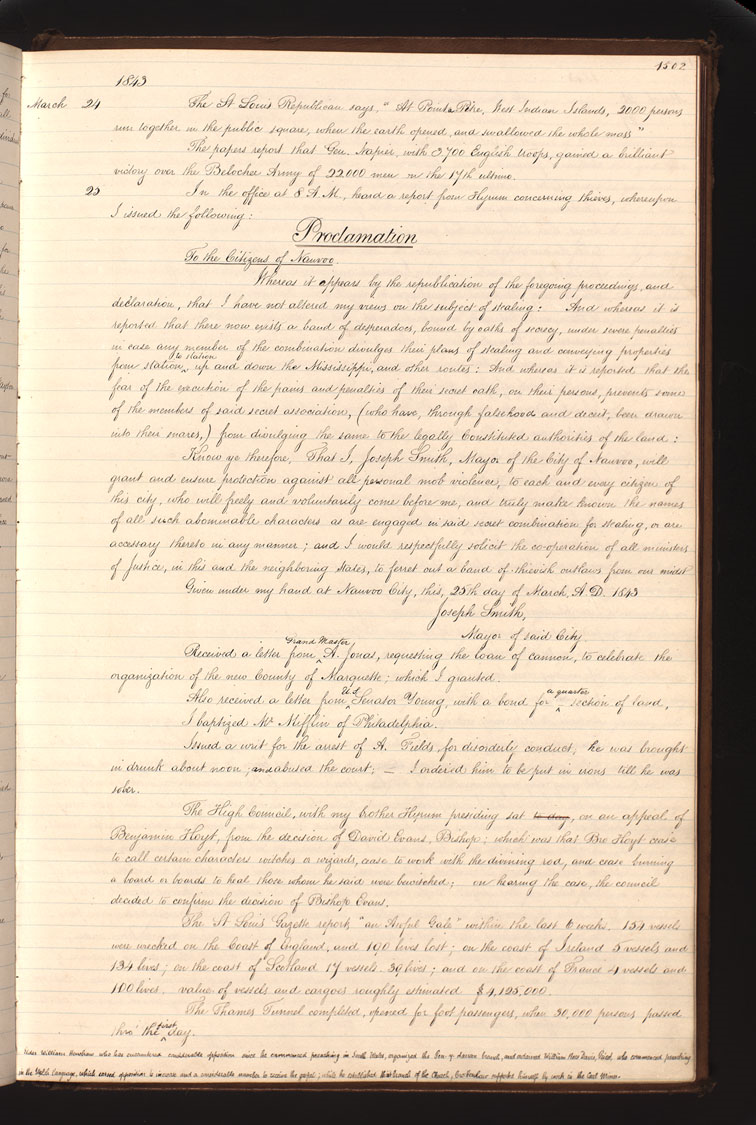 1502
1843
March 24 The St Louis Republican says, "At Point a Pitre, West Indian Islands, 2000 persons
run together in the public square, when the earth opened, and swallowed the whole mass"
The papers report that Gen. Napier, with 2,700 English troops, gained a brilliant
victory over the Belochee Army of 22000 men on the 17th ultimo.
25 In the office at 8 A.M., heard a report from Hyrum concerning thieves, whereupon
I issued the following:
Proclamation
To the Citizens of Nauvoo.
Whereas it appears by the republication of the foregoing proceedings, and
declaration, that I have not altered my views on the subject of stealing: And whereas it is
reported that there now exists a band of desperadoes, bound by oaths of secrecy, under severe penalties
in case any member of the combination divulges their plans of stealing and conveying properties
from station ^to station up and down the Mississippi, and other routes: And whereas it is reported that the
fear of the execution of the pains and penalties of their secret oath, on their persons, prevents some
of the members of said secret association, (who have, through falsehood and deceit, been drawn
into their snares,) from divulging the same to the legally Constituted authorities of the land:
Know ye therefore, That I, Joseph Smith, Mayor of the City of Nauvoo, will
grant and ensure protection against all personal mob violence, to each and every citizen of
this city, who will freely and voluntarily come before me, and truly make known the names
of all such abominable characters as are engaged in said secret combination for stealing, or are
accessary thereto in any manner; and I would respectfully solicit the co-operation of all ministers
of Justice, in this and the neighboring States, to ferret out a band of thievish outlaws from our midst
Given under my hand at Nauvoo City, this, 25th day of March, A.D. 1843
Joseph Smith,
Mayor of said City
Received a letter from ^Grand Master A. Jonas, requesting the loan of cannon, to celebrate the
organization of the new County of Marquette; which I granted.
Also received a letter from ^U.S. Senator Young, with a bond for ^a quarter section of land,
I baptized Mr Mifflin of Philadelphia.
Issued a writ for the arrest of A. Fields, for disorderly conduct; he was brought
in drunk about noon; and abused the court; — I ordered him to be put in irons till he was
sober.
The High Council, with my brother Hyrum presiding sat to day, on an appeal of
Benjamin Hoyt, from the decision of David Evans, Bishop; which was that Bro Hoyt cease
to call certain characters witches or wizards, cease to work with the divining rod, and cease burning
a board or boards to heal those whom he said were bewitched; on hearing the case, the council
decided to confirm the decision of Bishop Evans.
The St Louis Gazette reports, "an Awful Gale" within the last 6 weeks. 154 vessels
were wrecked on the Coast of England, and 190 lives lost; on the coast of Ireland 5 vessels and
134 lives; on the coast of Scotland 17 vessels. 39 lives; and on the coast of France 4 vessels and
100 lives. value of vessels and cargoes roughly estimated $4,125,000.
The Thames Tunnel completed, opened for foot passengers, when 30,000 persons passed
thro' the ^first day.
Elder William Henshaw who has encountered considerable opposition since he commenced preaching in South Wales, organized the Pen-y-darran branch, and ordained William Rees Davis, Priest, who commenced preaching
in the Welsh language, which caused opposition to increase and a considerable number to receive the gospel; while he established this branch of the Church, Bro Henshaw supported himself by work in the Coal Mines.